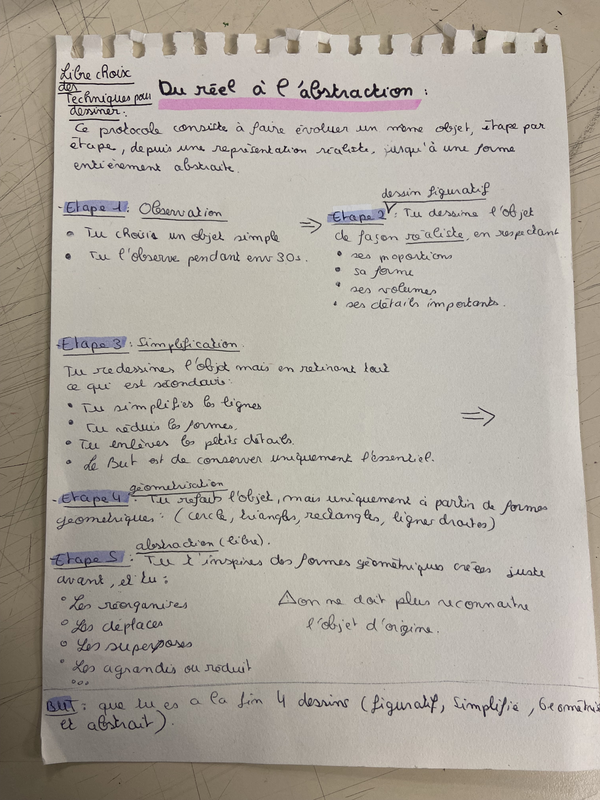 Libre choix
des
Techniques pour
dessiner.
Du réel à l'abstraction :
Ce protocole consiste à faire évoluer un même objet, étape par
étape, depuis une représentation réaliste, jusqu'à une forme
entièrement abstraite.
- Etape 1 : Observation
• Tu choisis un objet simple
• Tu l'observe pendant env 30s.
⇒
dessin figuratif
Etape 2 : Tu dessine l'objet
de façon réaliste, en respectant
• ses proportions
• sa forme
• ses volumes
• ses détails importants.
- Etape 3 : Simplification.
Tu redessines l'objet mais en retirant tout
ce qui est secondaire :
• Tu simplifies les lignes
• Tu réduis les formes.
• Tu enlèves les petits détails.
• Le But est de conserver uniquement l'essentiel.
⇒
géométrisation
- Etape 4 : Tu refais l'objet, mais uniquement à partir de formes
géometriques : (cercle, triangles, rectangles, lignes droites)
abstraction (libre).
Etape 5 : Tu t'inspires des formes géométriques créées juste
avant, et tu :
° Les réorganises
° Les déplaces
° Les superposes
° Les agrandis ou réduit
°°°
⚠ on ne doit plus reconnaitre
l'objet d'origine.
BUT : que tu es a la fin 4 dessins (figuratif, Simplifié, Géométrie
et abstrait).